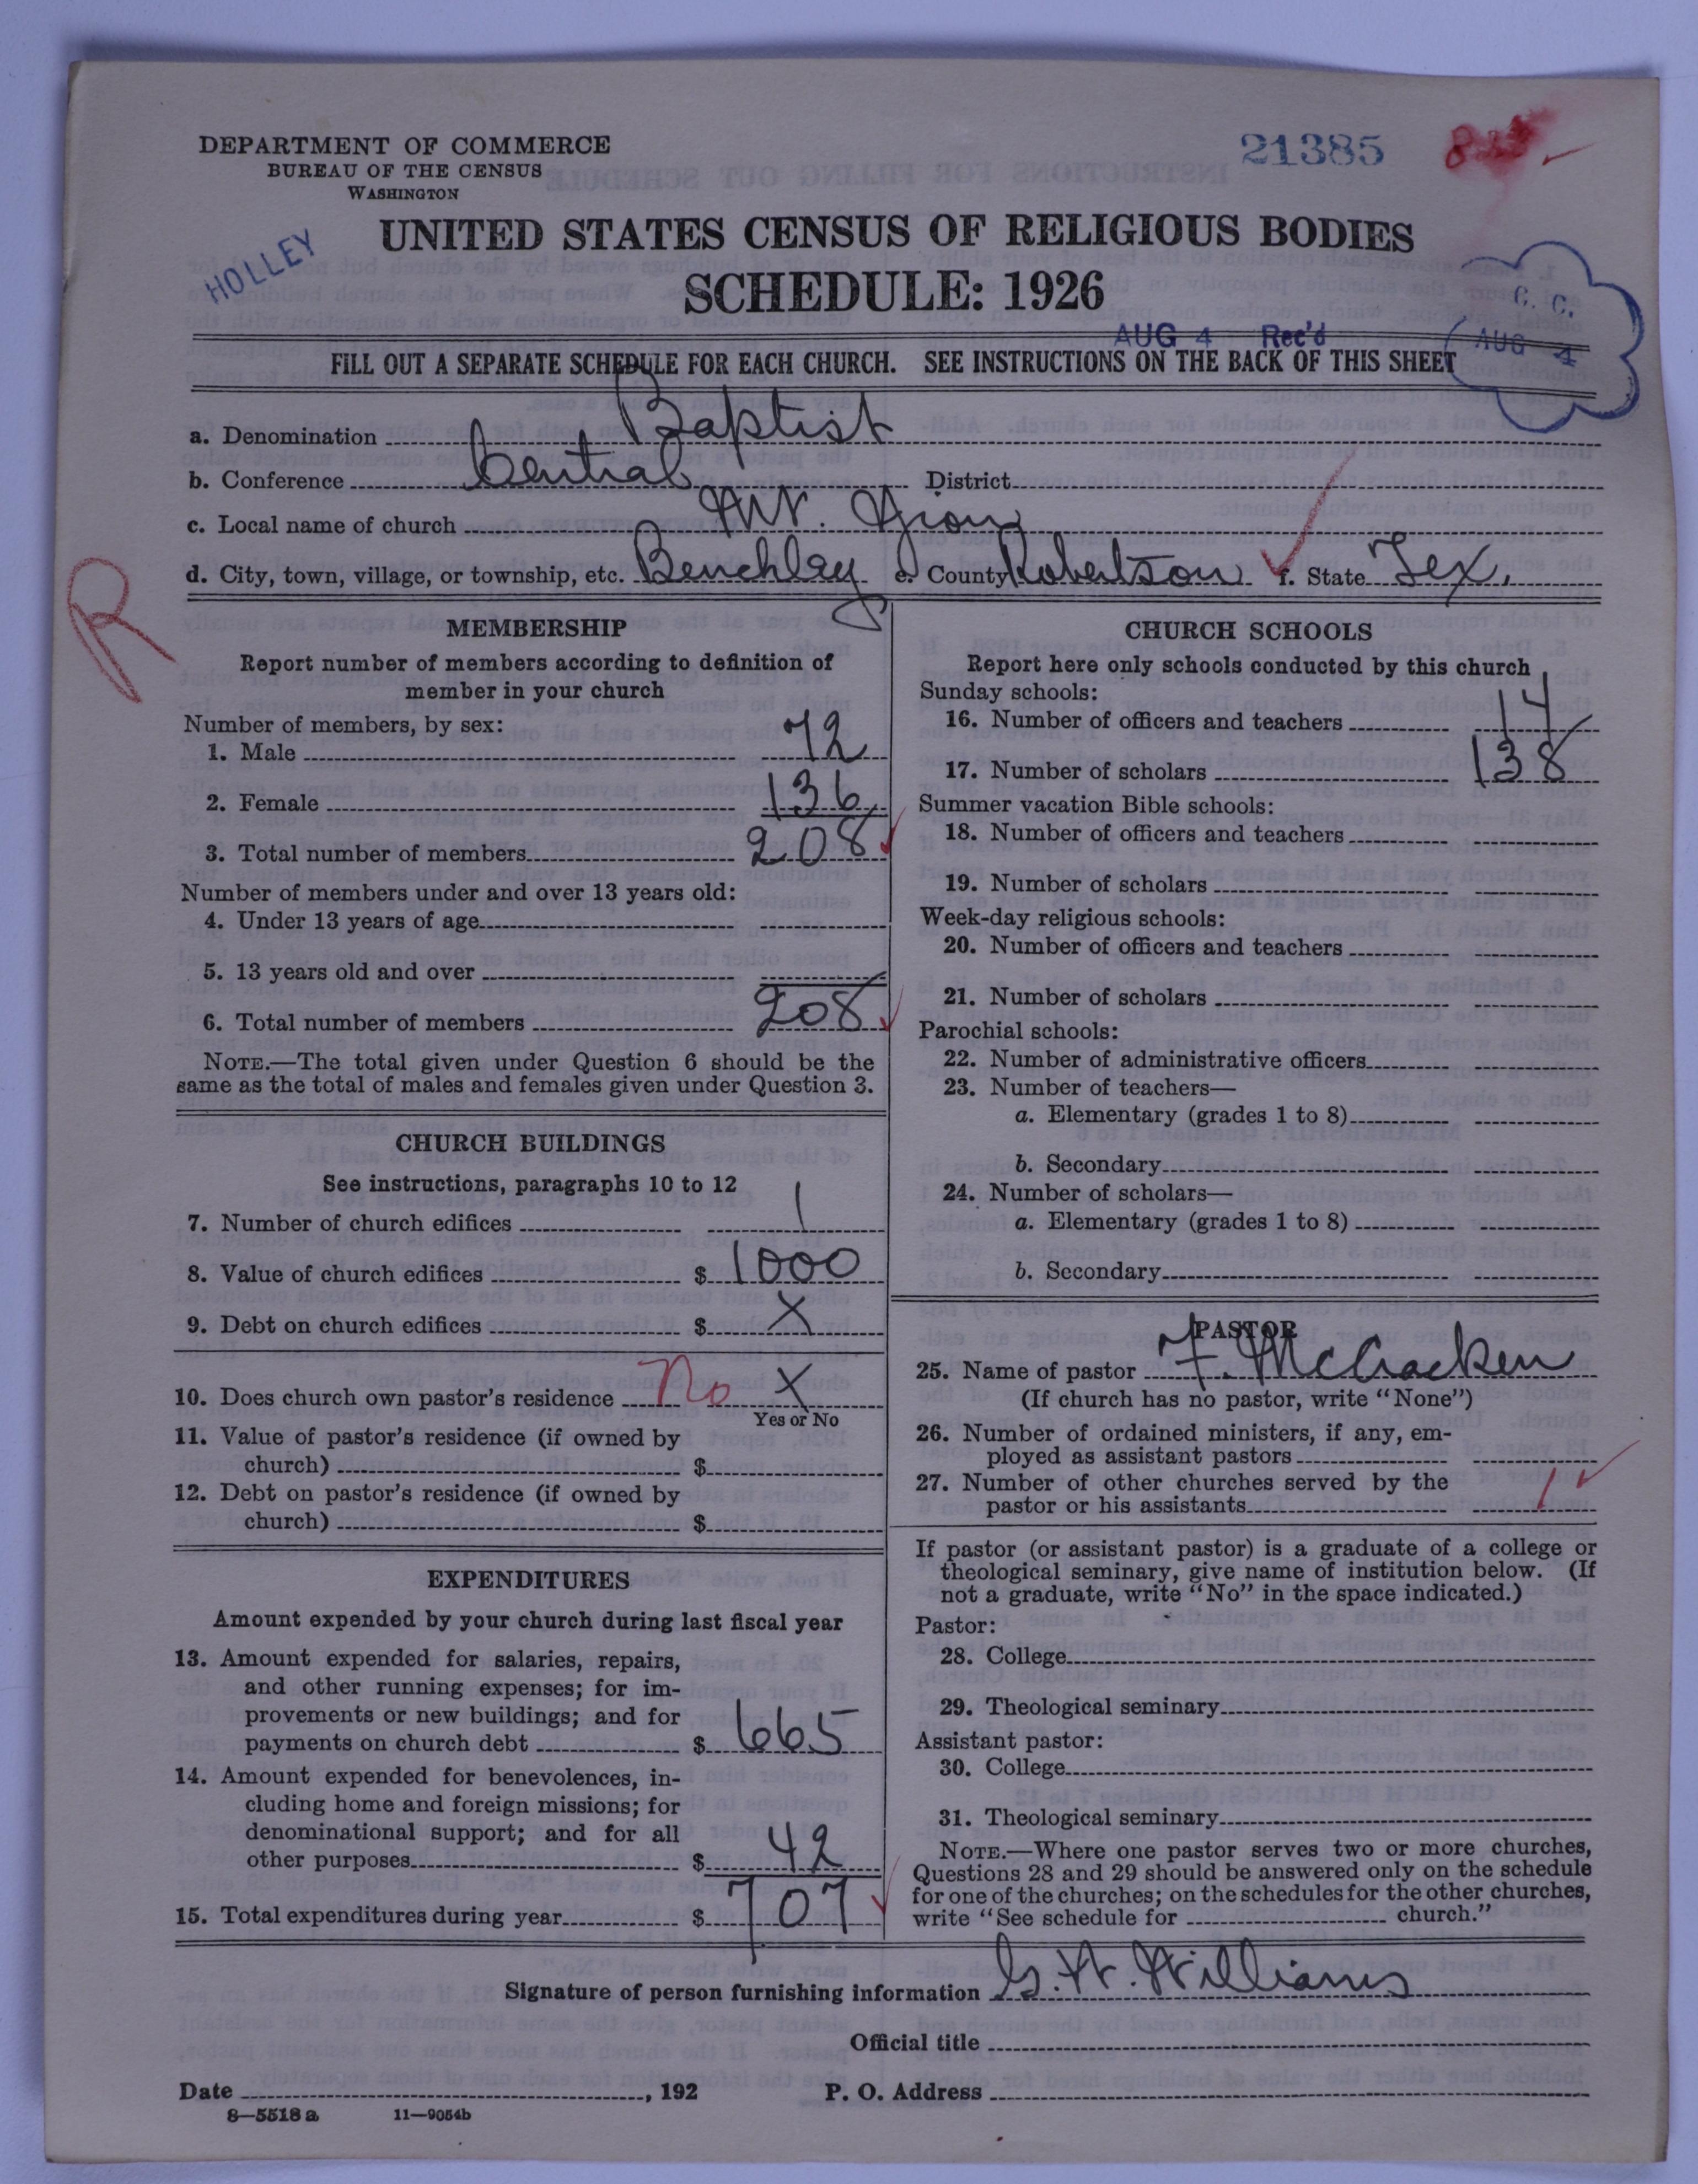 DEPARTMENT OF COMMERCE
BUREAU OF THE CENSUS
WASHINGTON
21385
HOLLEY
UNITED STATES CENSUS OF RELIGIOUS BODIES
SCHEDULE: 1926
C. C.
AUG 4
AUG 4 Rec'd
FILL OUT A SEPARATE SCHEDULE FOR EACH CHURCH. SEE INSTRUCTIONS ON THE BACK OF THIS SHEET
a. Denomination Baptist
b. Conference Central District
c. Local name of church Mt. Zion
d. City, town, village, or township, etc. Benchley e. County Robertson f. State Tex.
R
MEMBERSHIP
Report number of members according to definition of
member in your church
Number of members, by sex:
1. Male 72
2. Female 136
3. Total number of members 208
Number of members under and over 13 years old:
4. Under 13 years of age
5. 13 years old and over
6. Total number of members 208
NOTE.—The total given under Question 6 should be the
same as the total of males and females given under Question 3.
CHURCH BUILDINGS
See instructions, paragraphs 10 to 12
7. Number of church edifices 1
8. Value of church edifices $ 1000
9. Debt on church edifices $ X
10. Does church own pastor's residence No X
Yes or No
11. Value of pastor's residence (if owned by
church) $
12. Debt on pastor's residence (if owned by
church) $
EXPENDITURES
Amount expended by your church during last fiscal year
13. Amount expended for salaries, repairs,
and other running expenses; for im-
provements or new buildings; and for
payments on church debt $ 665
14. Amount expended for benevolences, in-
cluding home and foreign missions; for
denominational support; and for all
other purposes $ 42
15. Total expenditures during year $ 707
CHURCH SCHOOLS
Report here only schools conducted by this church
Sunday schools:
16. Number of officers and teachers 14
17. Number of scholars 138
Summer vacation Bible schools:
18. Number of officers and teachers
19. Number of scholars
Week-day religious schools:
20. Number of officers and teachers
21. Number of scholars
Parochial schools:
22. Number of administrative officers
23. Number of teachers—
a. Elementary (grades 1 to 8)
b. Secondary
24. Number of scholars—
a. Elementary (grades 1 to 8)
b. Secondary
PASTOR
25. Name of pastor F. McCracken
(If church has no pastor, write "None")
26. Number of ordained ministers, if any, em-
ployed as assistant pastors
27. Number of other churches served by the
pastor or his assistants 1
If pastor (or assistant pastor) is a graduate of a college or
theological seminary, give name of institution below. (If
not a graduate, write "No" in the space indicated.)
Pastor:
28. College
29. Theological seminary
Assistant pastor:
30. College
31. Theological seminary
NOTE.—Where one pastor serves two or more churches,
Questions 28 and 29 should be answered only on the schedule
for one of the churches; on the schedules for the other churches,
write "See schedule for church."
Signature of person furnishing information G. W. Williams
Official title
Date , 192 P. O. Address
8—5518 a 11—9054b